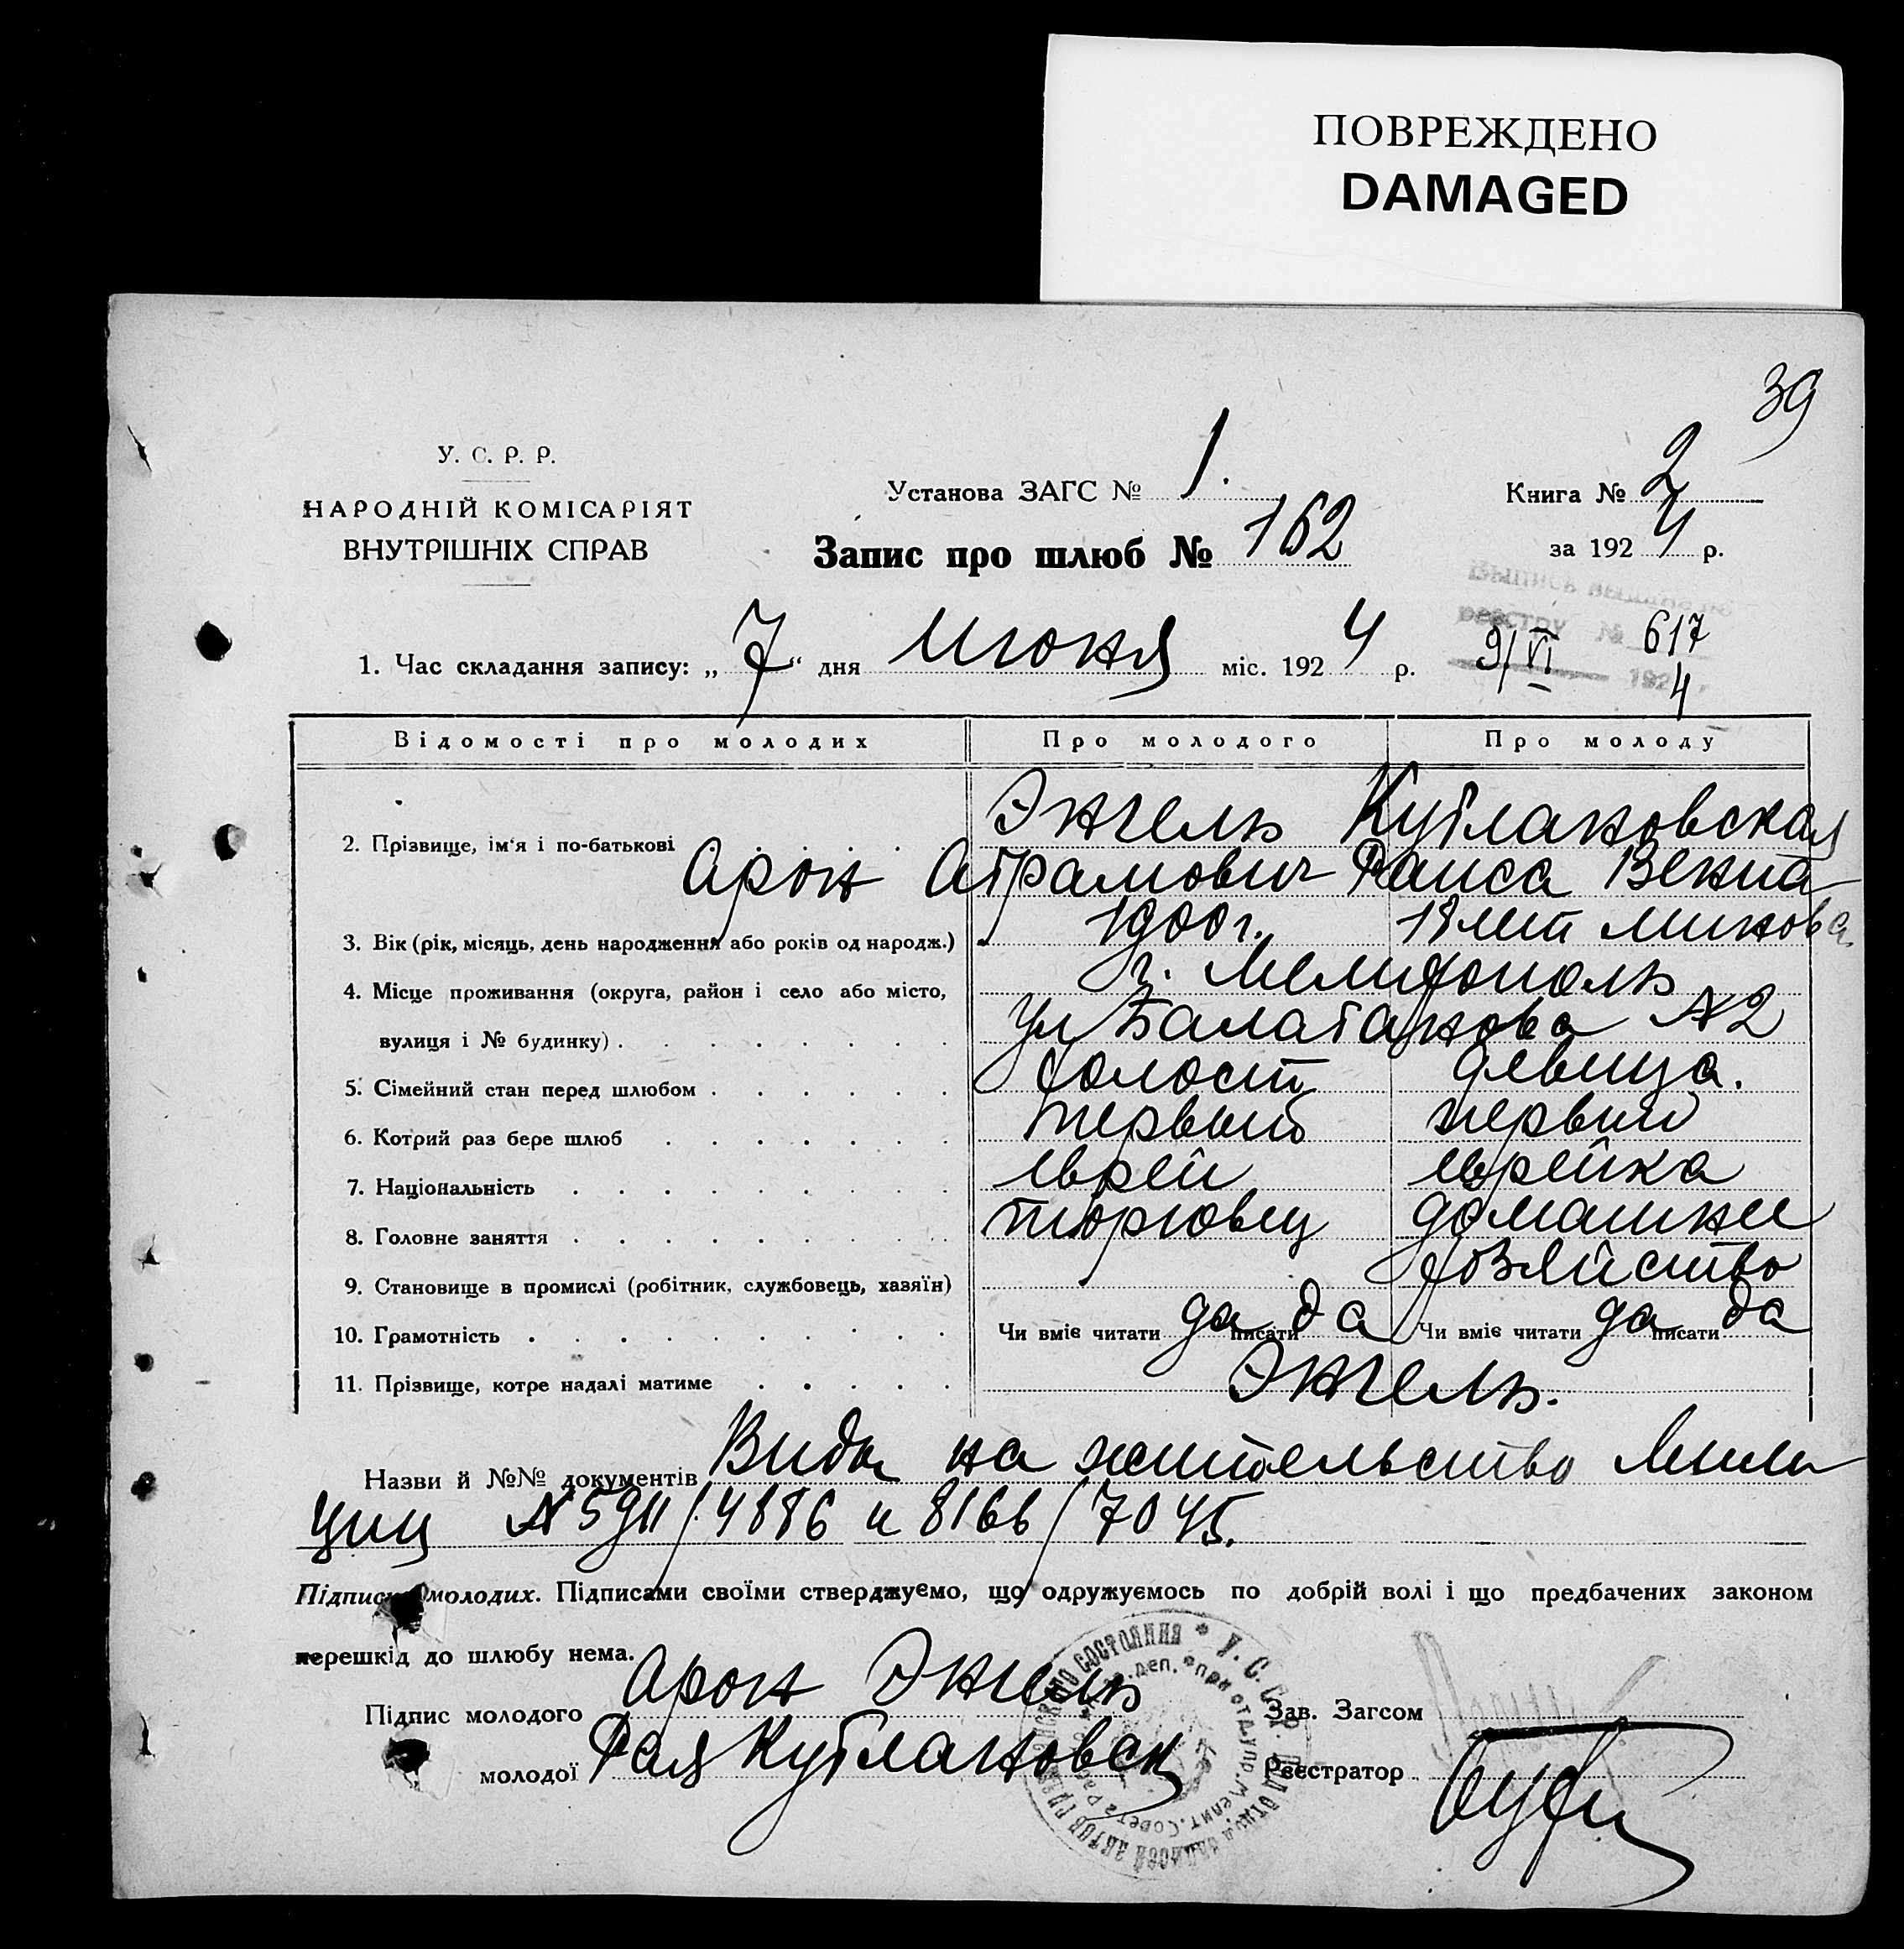 ПОВРЕЖДЕНО
DAMAGED
39
У. С. Р. Р.
НАРОДНІЙ КОМІСАРІЯТ
ВНУТРІШНІХ СПРАВ
Установа ЗАГС № 1.
Книга № 2
Запис про шлюб № 162
за 1924 р.
Выпись выдана по
реестру № 617
9/VI 1924
1. Час складання запису: „7“ дня Июня міс. 1924 р.
Відомості про молодих Про молодого Про молоду
2. Прізвище, ім'я і по-батькові Энгель Кутлановская
Арон Абрамович Раиса Вениа
3. Вік (рік, місяць, день народження або років од народж.) 1900 г. 18 лет минова
4. Місце проживання (округа, район і село або місто, г. Мелитополь
вулиця і № будинку) ул Балабанова №2
5. Сімейний стан перед шлюбом холост девица.
6. Котрий раз бере шлюб первый первый
7. Національність еврей еврейка
8. Головне заняття торговец домашнее
хозяйство
9. Становище в промислі (робітник, службовець, хазяїн)
10. Грамотність Чи вміє читати да писати да Чи вміє читати да писати да
11. Прізвище, котре надалі матиме Энгель.
Назви й №№ документів Виды на жительство Мили
ции №5911/4886 и 8166/7045.
Підписи молодих. Підписами своїми стверджуємо, що одружуємось по добрій волі і що предбачених законом
перешкід до шлюбу нема.
Підпис молодого Арон Энгель
Зав. Загсом
молодої Рая Кутлановск
Реєстратор